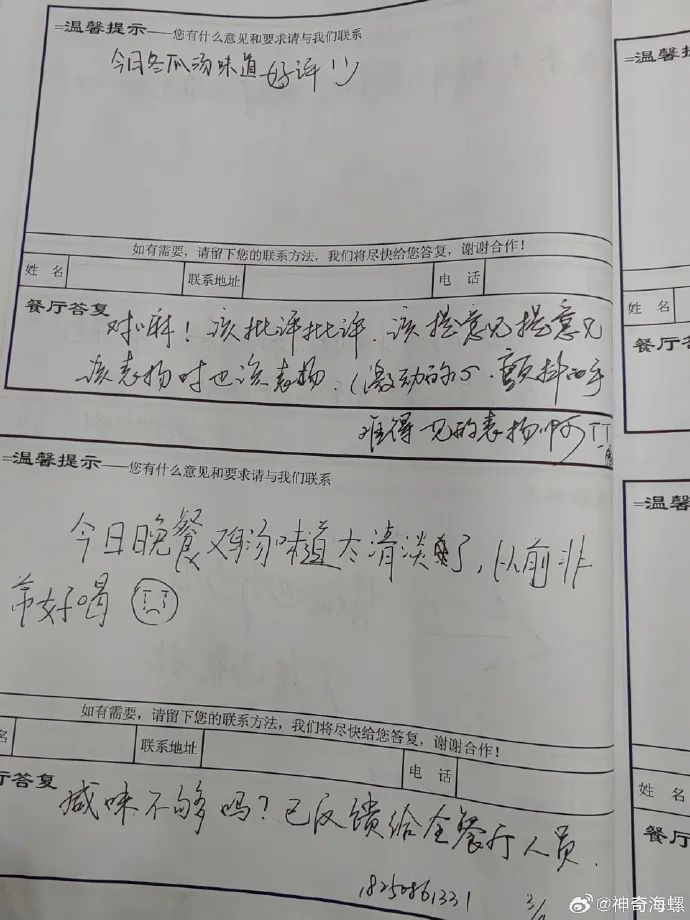 =温馨提示——您有什么意见和要求请与我们联系
今日冬瓜汤味道好评!!
如有需要，请留下您的联系方法，我们将尽快给您答复，谢谢合作！
姓 名 联系地址 电 话
餐厅答复
对嘛！该批评批评.该提意见提意见
该表扬时也该表扬.(激动的心.颤抖的手
难得一见的表扬啊TT
=温馨提示——您有什么意见和要求请与我们联系
今日晚餐鸡汤味道太清淡了，以前非
常好喝
如有需要，请留下您的联系方法，我们将尽快给您答复，谢谢合作！
名 联系地址 电 话
厅答复
咸味不够吗？已反馈给全餐厅人员.
18250861331
=温馨提
姓 名
餐厅答
=温馨
姓 名
餐厅
@神奇海螺